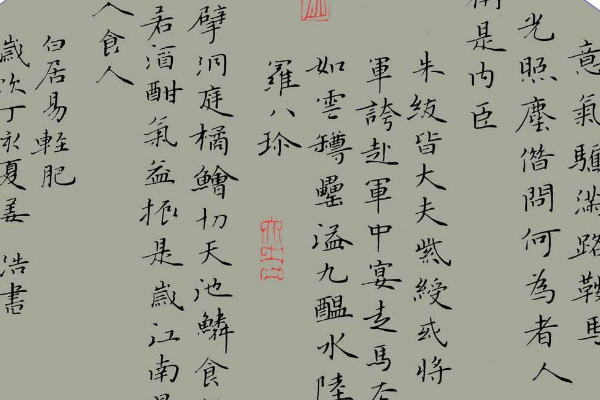 意氣驕滿路鞍馬
光照塵借問何為者人
是內臣
朱紱皆大夫紫綬或將
軍誇赴軍中宴走馬去
如雲罇罍溢九醞水陸
羅八珍
擘洞庭橘鱠切天池鱗食
若酒酣氣益振是歲江南
人食人
白居易輕肥
歲次丁亥夏姜浩書